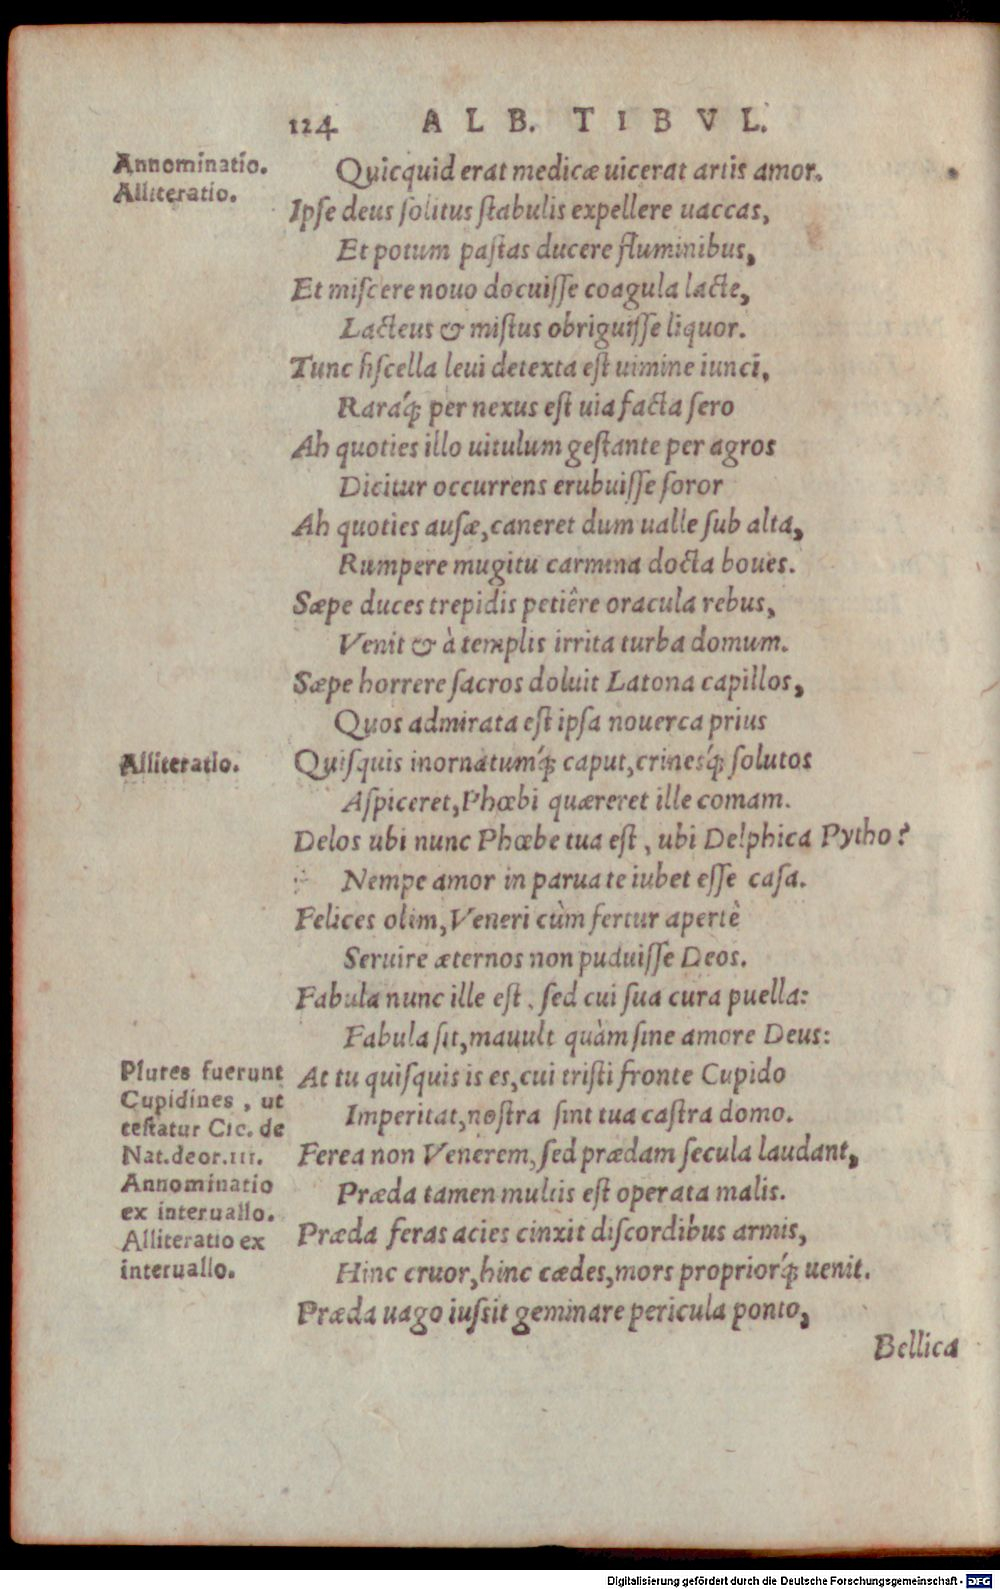 124 ALB. TIBVL.
Annominatio.
Alliteratio.
Quicquid erat medicæ uicerat artis amor.
Ipſe deus ſolitus ſtabulis expellere uaccas,
Et potum paſtas ducere fluminibus,
Et miſcere nouo docuiſſe coagula lacte,
Lacteus & miſtus obriguiſſe liquor.
Tunc fiſcella leui detexta eſt uimine iunci,
Raraq́; per nexus eſt uia facta ſero
Ah quoties illo uitulum geſtante per agros
Dicitur occurrens erubuiſſe ſoror
Ah quoties auſæ, caneret dum ualle ſub alta,
Rumpere mugitu carmina docta boues.
Sæpe duces trepidis petiêre oracula rebus,
Venit & à templis irrita turba domum.
Sæpe horrere ſacros doluit Latona capillos,
Quos admirata eſt ipſa nouerca prius
Alliteratio.
Quiſquis inornatumq́; caput, crinesq́; ſolutos
Aſpiceret, Phœbi quæreret ille comam.
Delos ubi nunc Phœbe tua eſt, ubi Delphica Pytho?
Nempe amor in parua te iubet eſſe caſa.
Felices olim, Veneri cùm fertur apertè
Seruire æternos non puduiſſe Deos.
Fabula nunc ille eſt. ſed cui ſua cura puella:
Fabula ſit, mauult quàm ſine amore Deus:
Plures fuerunt
Cupidines, ut
teſtatur Cic. de
Nat. deor. III.
Annominatio
ex interuallo.
Alliteratio ex
interuallo.
At tu quiſquis is es, cui triſti fronte Cupido
Imperitat, noſtra ſint tua caſtra domo.
Ferea non Venerem, ſed prædam ſecula laudant,
Præda tamen multis eſt operata malis.
Præda feras acies cinxit diſcordibus armis,
Hinc cruor, hinc cædes, mors propriorq́; uenit.
Præda uago iuſsit geminare pericula ponto,
Bellica
Digitalisierung gefördert durch die Deutsche Forschungsgemeinschaft - DFG